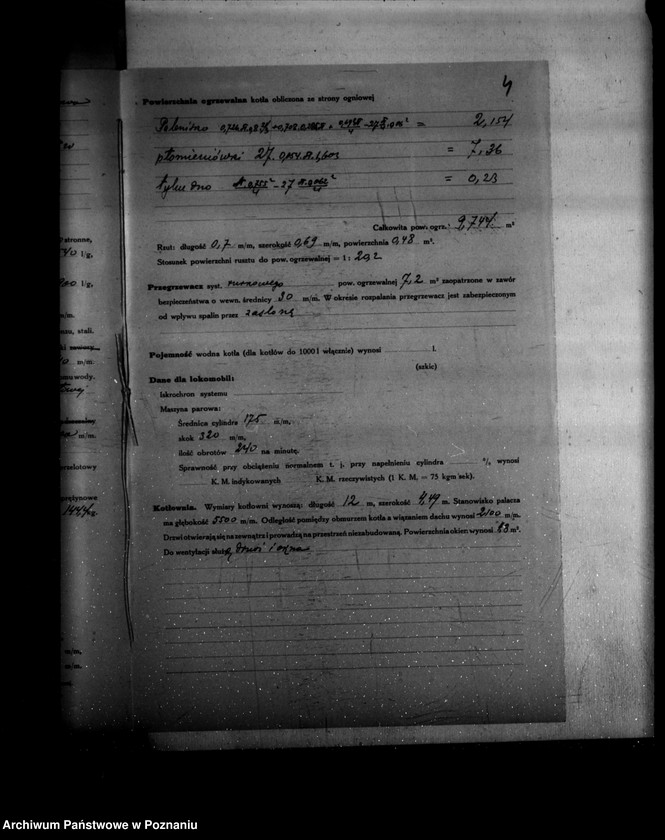 4
Powierzchnia ogrzewalna kotła obliczona ze strony ogniowej
Palenisko = 2,154
płomieniówki 27. 0,054. π. 1,603 = 7,36
tylne dno = 0,23
Całkowita pow. ogrz.: 9,744 m²
Rzut: długość 0,7 m/m, szerokość 0,69 m/m, powierzchnia 0,48 m².
Stosunek powierzchni rusztu do pow. ogrzewalnej = 1 : 20,2
Przegrzewacz syst. rurowego pow. ogrzewalnej 7,2 m² zaopatrzone w zawór
bezpieczeństwa o wewn. średnicy 30 m/m. W okresie rozpalania przegrzewacz jest zabezpieczonym
od wpływu spalin przez zasłonę
Pojemność wodna kotła (dla kotłów do 1000 l włącznie) wynosi l.
(szkic)
Dane dla lokomobil:
Iskrochron systemu
Maszyna parowa:
Średnica cylindra 175 m/m,
skok 320 m/m,
ilość obrotów 240 na minutę.
Sprawność przy obciążeniu normalnem t. j. przy napełnieniu cylindra % wynosi
K. M. indykowanych K. M. rzeczywistych (1 K. M. = 75 kgm/sek).
Kotłownia. Wymiary kotłowni wynoszą: długość 12 m, szerokość 4,49 m. Stanowisko palacza
ma głębokość 5500 m/m. Odległość pomiędzy obmurzem kotła a wiązaniem dachu wynosi 2100 m/m.
Drzwi otwierają się na zewnątrz i prowadzą na przestrzeń niezabudowaną. Powierzchnia okien wynosi m².
Do wentylacji służą drzwi i okna
stronne,
l/g,
l/g,
m/m.
stali.
m/m.
wody.
m/m.
m/m,
m/m.
Archiwum Państwowe w Poznaniu